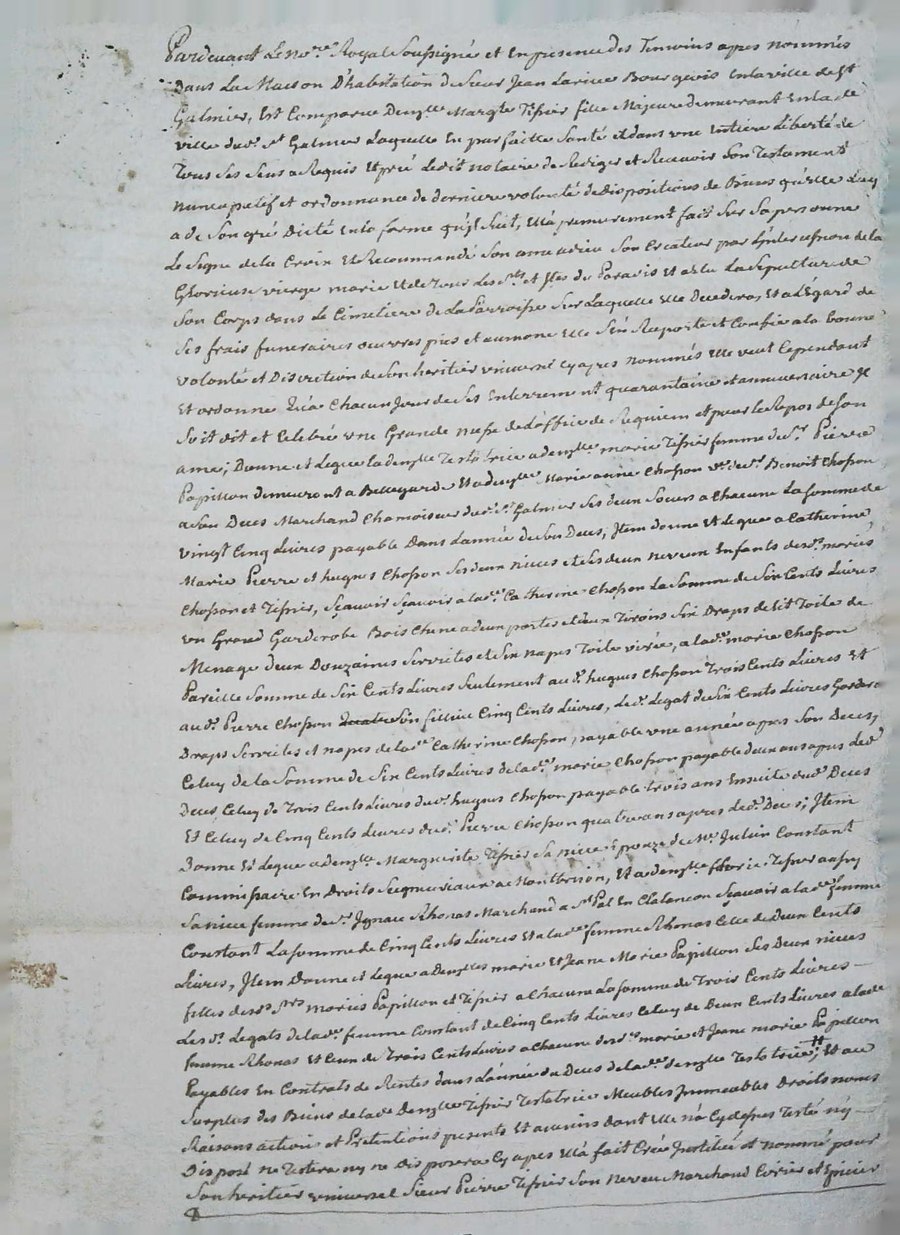 Pardevant Le No.re Royal Soussigné et En presence des Temoins apres nommés
dans La Maison D'habitation de Sieur Jean Larive Bourgeois En la ville de St
Galmier, Est Comparue Demlle Margte Tissier fille Majeure demeurant En lade
ville dud. St Galmier Laquelle En parfaitte Santé et dans une Entiere Liberté de
Tous ses Sens a Requis Et prié Ledit notaire de Rediger et Recevoir Son Testament
nuncupatif et ordonnance de derniere volonté de dispositions de Biens qu'Elle Luy
a de Son gré Dicté En la forme qu'il Suit, Ella premierement fait Sur Sa personne
Le Signe de la Croix Et Recommandé Son ame a dieu Son Createur par L'intercession de la
Glorieuse vierge marie Et de Tous Les Sts et Stes du Paradis Et a Elu La Sepulture de
Son Corps dans Le Cimetiere de La Parroisse Sur Laquelle Elle Decedera, Et a L'Egard de
Ses frais funeraires œuvres pies et aumone Elle S'En Raporte et Confie a la bonne
volonté et Discretion de Son heritier universel Cy apres nommés Elle veut Cependant
Et ordonne Qu'a Chacun Jour de Ses Enterrement quarantaine et anniversaire Il
Soit dit et Celebré une Grande messe de L'office de Requiem et pour le Repos de Son
ame; Donne et Legue La demlle Testatrice a demlle marie Tissier femme de Sr Pierre
Papillon demeurant a Bellegarde Et a demlle Marie anne Chosson ve de Sr Benoit Chosson
a Son Deces Marchand Chamoiseur dud. St Galmier Ses deux Soeurs a Chacune La Somme de
vingt Cinq Livres payable Dans L'année de Son Deces, Item donne Et Legue a Catherine
Marie Pierre et hugues Chosson Ses deux nieces et Ses deux neveux Enfants desd. mariés
Chosson et Tissier, Sçavoir Sçavoir a lade Catherine Chosson La Somme de Six Cents Livres
un Grand Garderobe Bois Chene a deux portes et deux Tiroirs Six Draps de Lit Toile de
Menage deux Douzaines Serviettes et Six napes Toile, a lade marie Chosson
Pareille Somme de Six Cents Livres Seulement aud. hugues Chosson Trois Cents Livres Et
aud. Pierre Chosson Son filleul Cinq Cents Livres, Led. Legat de Six Cents Livres Garderobe
Draps Serviettes et napes de lade Catherine Chosson, payable une année apres Son Deces,
Celuy de la Somme de Six Cents Livres de lade marie Chosson payable deux ans apres led.
Deces, Celuy de Trois Cents Livres dud. hugues Chosson payable trois ans Ensuite dud. Deces
Et Celuy de Cinq Cents Livres dud. Pierre Chosson quatre ans apres led. Deces; Item
Donne Et Legue a demlle Marguerite Tissier Sa niece Epouze de Me Julien Constant
Commissaire En Droits Seigneuriaux a Montbrison, Et a demlle Tissier aussy
Sa niece femme de Sr Ignace Rhonas Marchand a St Pal En Chalancon Sçavoir a lade femme
Constant La Somme de Cinq Cents Livres Et a lade femme Rhonas Celle de Deux Cents
Livres, Item Donne et Legue a Demlles marie Et Jeane Marie Papillon Ses Deux nieces
filles desd. Srs mariés Papillon et Tissier a Chacune La Somme de Trois Cents Livres
Lesd. Legats de lade femme Constant de Cinq Cents Livres Celuy de Deux Cents Livres a lade
femme Rhonas Et Ceux de Trois Cents Livres a Chacune desd. marie et Jeane marie Papillon
Payables En Contrats de Rentes dans L'année du Deces de lade demlle Testatrice; Et au
Surplus des Biens de lade Demlle Tissier Testatrice Meubles Immeubles Droits noms
Raisons actions et Pretentions presents Et avenirs dont Elle n'a Cy dessus Testé ny
Disposé ne Testera ny ne Disposera Cy apres Ella fait Créé Institué et nommé pour
Son heritier universel Sieur Pierre Tissier Son neveu Marchand Cirier et Epicier